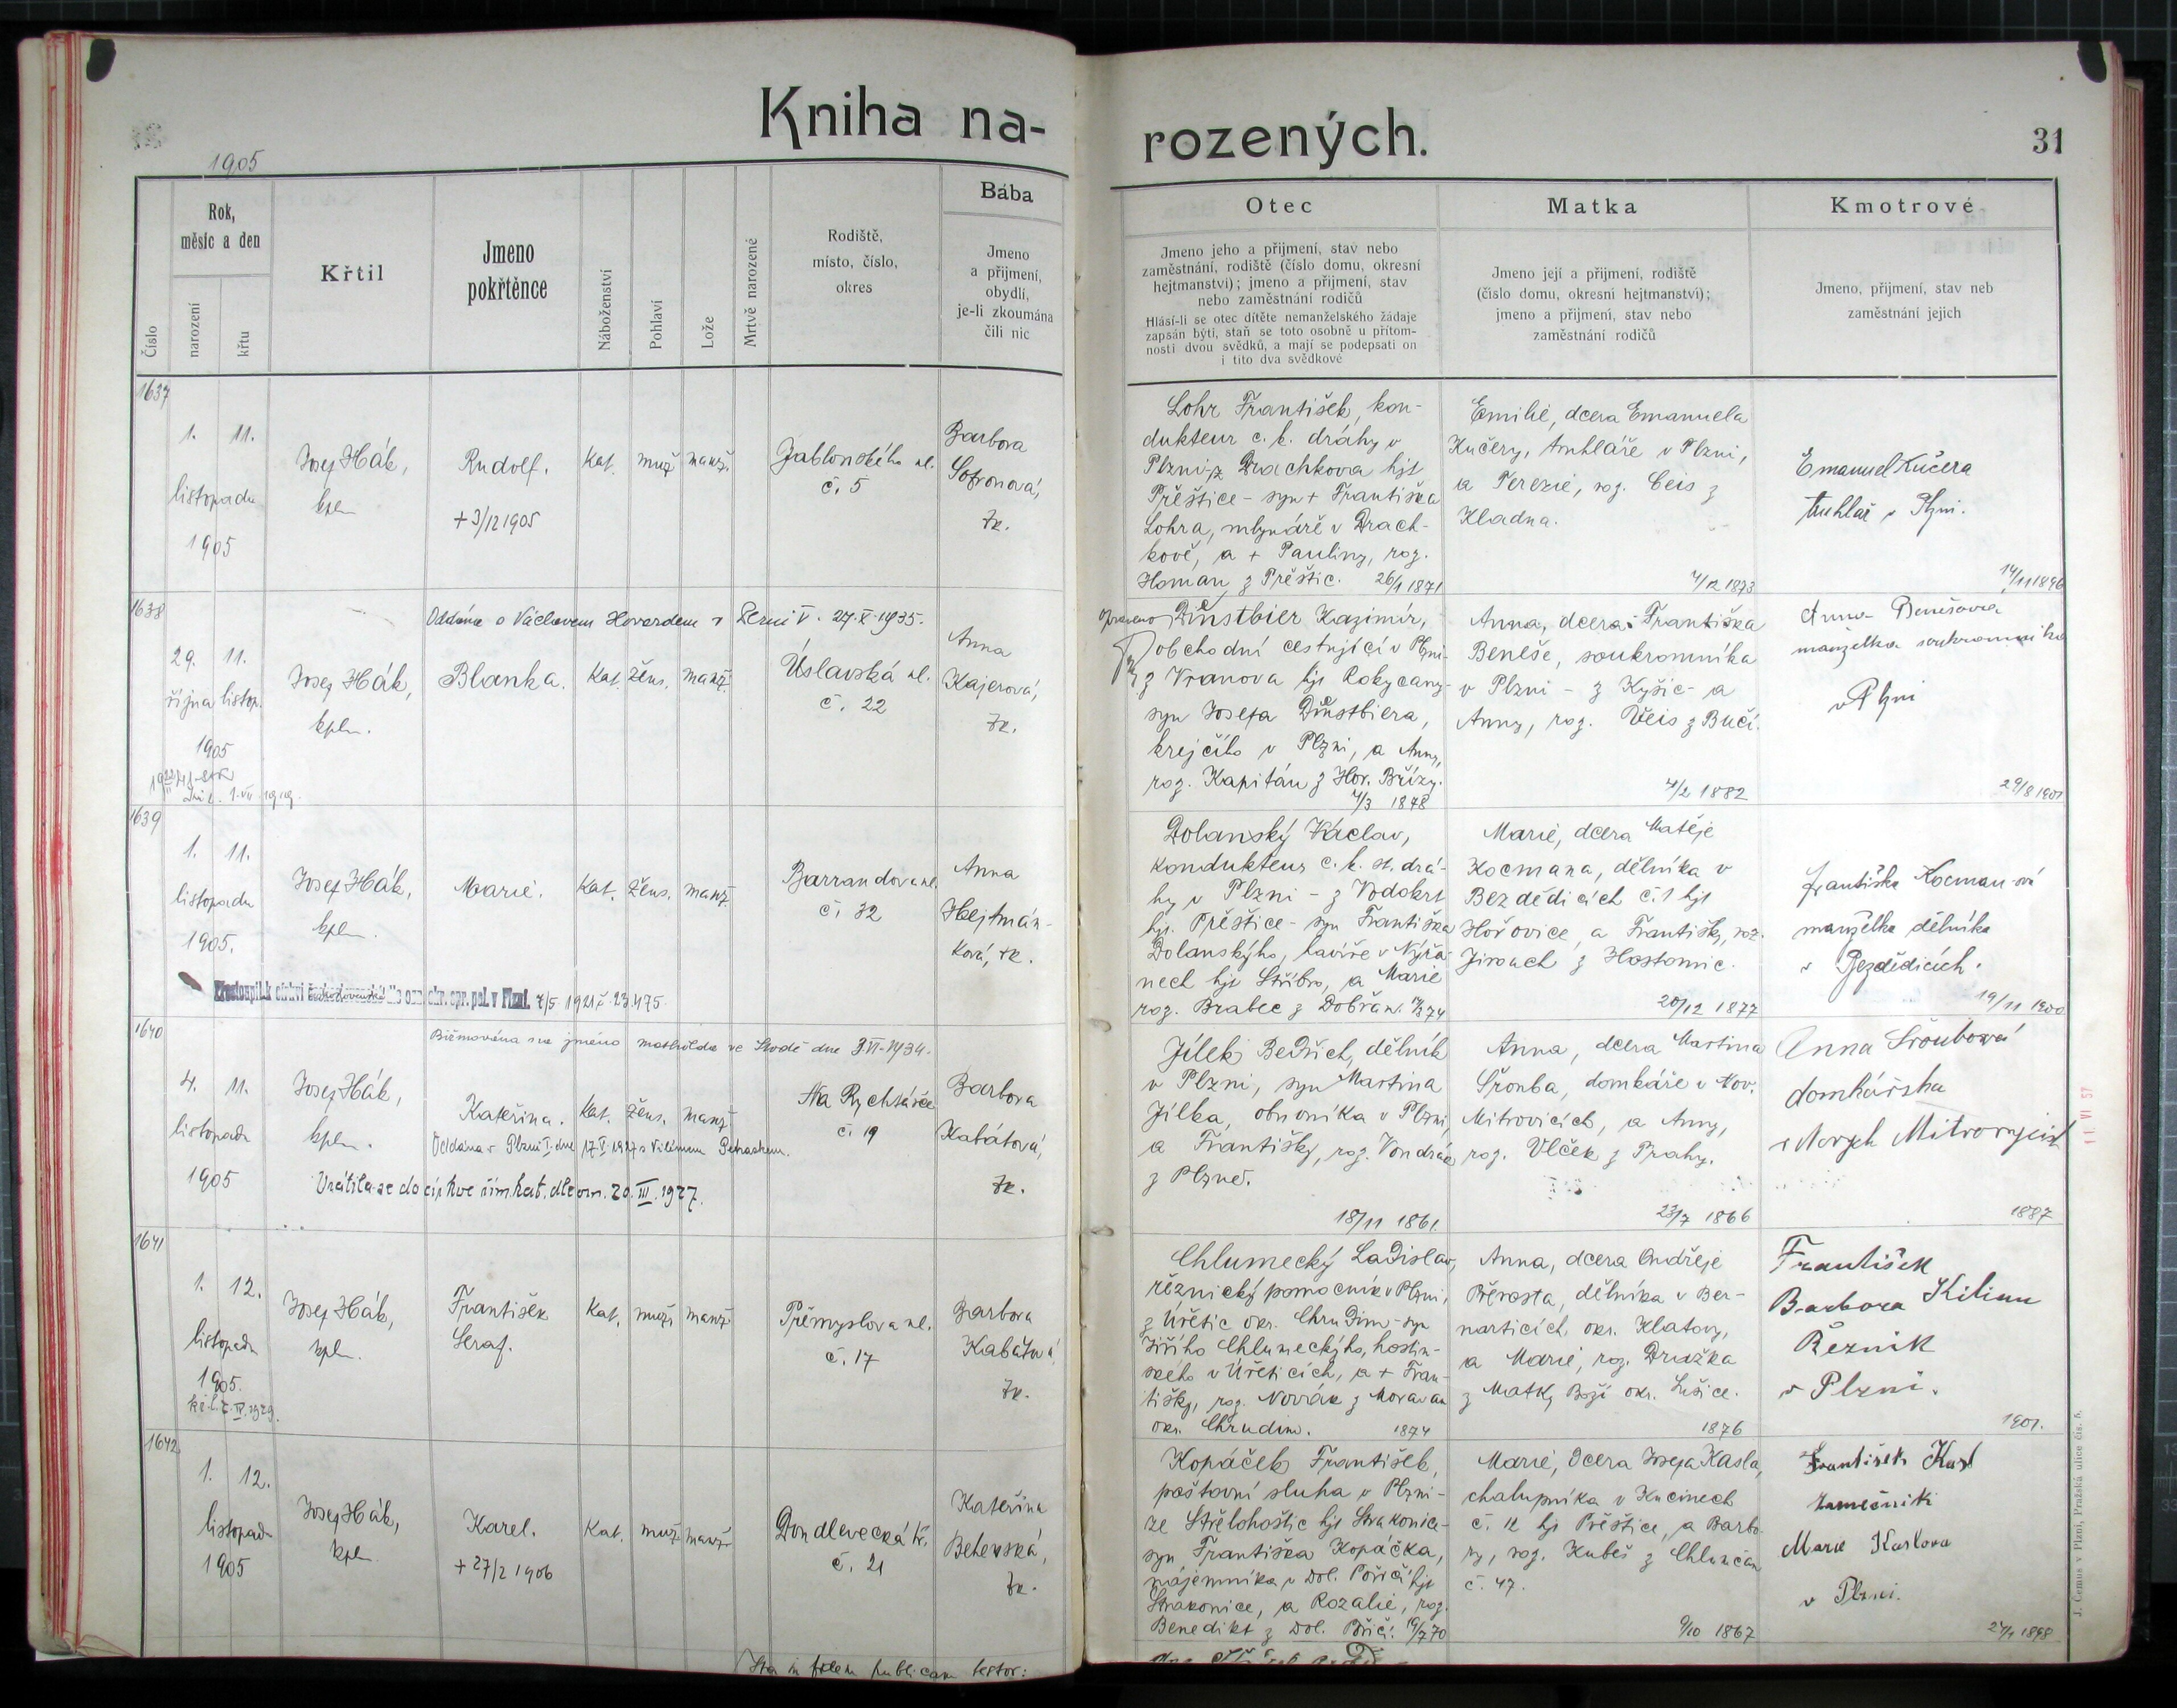 Kniha na-
rozených.
31
1905
Číslo
Rok,
měsíc a den
narození
křtu
Křtil
Jmeno
pokřtěnce
Náboženství
Pohlaví
Lože
Mrtvě narozené
Rodiště,
místo, číslo,
okres
Bába
Jmeno
a přijmení,
obydlí,
je-li zkoumána
čili nic
Otec
Jmeno jeho a přijmení, stav nebo
zaměstnání, rodiště (číslo domu, okresní
hejtmanství); jmeno a přijmení, stav
nebo zaměstnání rodičů
Hlásí-li se otec dítěte nemanželského žádaje
zapsán býti, staň se toto osobně u přítom-
nosti dvou svědků, a mají se podepsati on
i tito dva svědkové
Matka
Jmeno její a přijmení, rodiště
(číslo domu, okresní hejtmanství);
jmeno a přijmení, stav nebo
zaměstnání rodičů
Kmotrové
Jmeno, přijmení, stav neb
zaměstnání jejich
1637
1. 11.
listopadu
1905
Josef Hák,
kpln
Rudolf.
+ 3/12 1905
Kat.
muž.
manž.
Jablonského ul.
č. 5
Barbora
Sofronová,
zk.
Lohr František, kon-
dukteur c. k. dráhy v
Plzni, z Drachkova hjt
Přeštice - syn + Františka
Lohra, mlynáře v Drach-
kově, a + Pauliny, roz.
Homan z Přeštic. 26/1 1871
Emilie, dcera Emanuela
Kučery, truhláře v Plzni,
a Terezie, roz. Ceis z
Kladna.
4/12 1873
Emanuel Kučera
truhlář v Plzni.
14/11 1896
1638
29. 11.
října listop.
1905
Josef Hák,
kpln.
Oddána s Václavem Hovardem v Plzni V. 27.X.1935.
Blanka.
Kat.
žens.
manž.
Úslavská ul.
č. 22
Anna
Kajerová,
zk.
Opraveno Dinstbier Kazimír,
obchodní cestující v Plzni-
z Vranova hjt Rokycany-
syn Josefa Dinstbiera,
krejčího v Plzni, a Anny,
roz. Kapitán z Hor. Břízy.
4/3 1878
Anna, dcera Františka
Beneše, soukromníka
v Plzni - z Kyšic - a
Anny, roz. Weis z Bučí.
4/2 1882
Anna Benešová
manželka soukromníka
v Plzni
29/8 1901
1639
1. 11.
listopadu
1905.
Josef Hák,
kpln.
Marie.
Kat.
žens.
manž.
Barrandova ul.
č. 32
Anna
Hejtmán-
ková, zk.
4/5 1921 č. 23.475
Dolanský Václav,
kondukteur c. k. st. drá-
hy v Plzni - z Vodokrt
hjt. Přeštice - syn Františka
Dolanskýho, havíře v Nýřa-
nech hjt Stříbro, a Marie
roz. Brabec z Dobřan.
Marie, dcera Matěje
Kocmana, dělníka v
Bezdědicích č. 1 hjt
Hořovice, a Františky, roz.
Jirouch z Hostomic.
20/12 1877
Františka Kocmanová
manželka dělníka
v Bezdědicích.
19/11 1900
1640
4. 11.
listopadu
1905
Josef Hák,
kpln.
Biřmována na jméno Mathilda ve Stodě dne 3.VI.1934.
Kateřina.
Oddána v Plzni I. dne 17.V.1927 s Vilémem
Vrátila se do církve řím.kat. dle ozn. 20.III.1927.
Kat.
žens.
manž.
Na Rychtářce
č. 19
Barbora
Kabátová,
zk.
Jílek Bedřich, dělník
v Plzni, syn Martina
Jílka, obuvníka v Plzni
a Františky, roz. Vondrák
z Plzně.
18/11 1861.
Anna, dcera Martina
Šrouba, domkáře v Nov.
Mitrovicích, a Anny,
roz. Vlček z Prahy.
23/7 1866
Anna Šroubová
domkářka
v Nových Mitrovicích
1887
11 VI 37
1641
1. 12.
listopadu
1905.
Josef Hák,
kpln.
František
Seraf.
Kat.
muž.
manž.
Přemyslova ul.
č. 17
Barbora
Kabátová
zk.
Chlumecký Ladislav,
řeznický pomocník v Plzni,
z Úřetic okr. Chrudim - syn
Jiřího Chlumeckýho, hostin-
ského v Úřeticích, a + Fran-
tišky, roz. Novák z Moravan
okr. Chrudim. 1874
Anna, dcera Ondřeje
Přerosta, dělníka v Ber-
narticích, okr. Klatovy,
a Marie, roz. Družka
z Matky Boží okr. Sušice.
1876
František
Barbora Kilian
Řezník
v Plzni.
1901.
1642
1. 12.
listopadu
1905
Josef Hák,
kpln
Karel.
+ 27/2 1906
Kat.
muž.
manž.
Doudlevecká tř.
č. 21
Kateřina
Behenská,
zk.
Kopáček František,
poštovní sluha v Plzni -
ze Střelohoštic hjt Strakonice -
syn Františka Kopáčka,
nájemníka v Dol. Poříčí hjt
Strakonice, a Rozalie, roz.
Benedikt z Dol. Poříčí. 19/7 70
Marie, dcera Josefa Kasla,
chalupníka v Kucinech
č. 12 hjt Přeštice, a Barbo-
ry, roz. Kubeš z Chlumčan
č. 47.
9/10 1867
František Kasl
zámečník
Marie Kaslova
v Plzni.
27/1 1898
Ita in fidem publicam testor:
J. Černus v Plzni, Pražská ulice čís. 5.